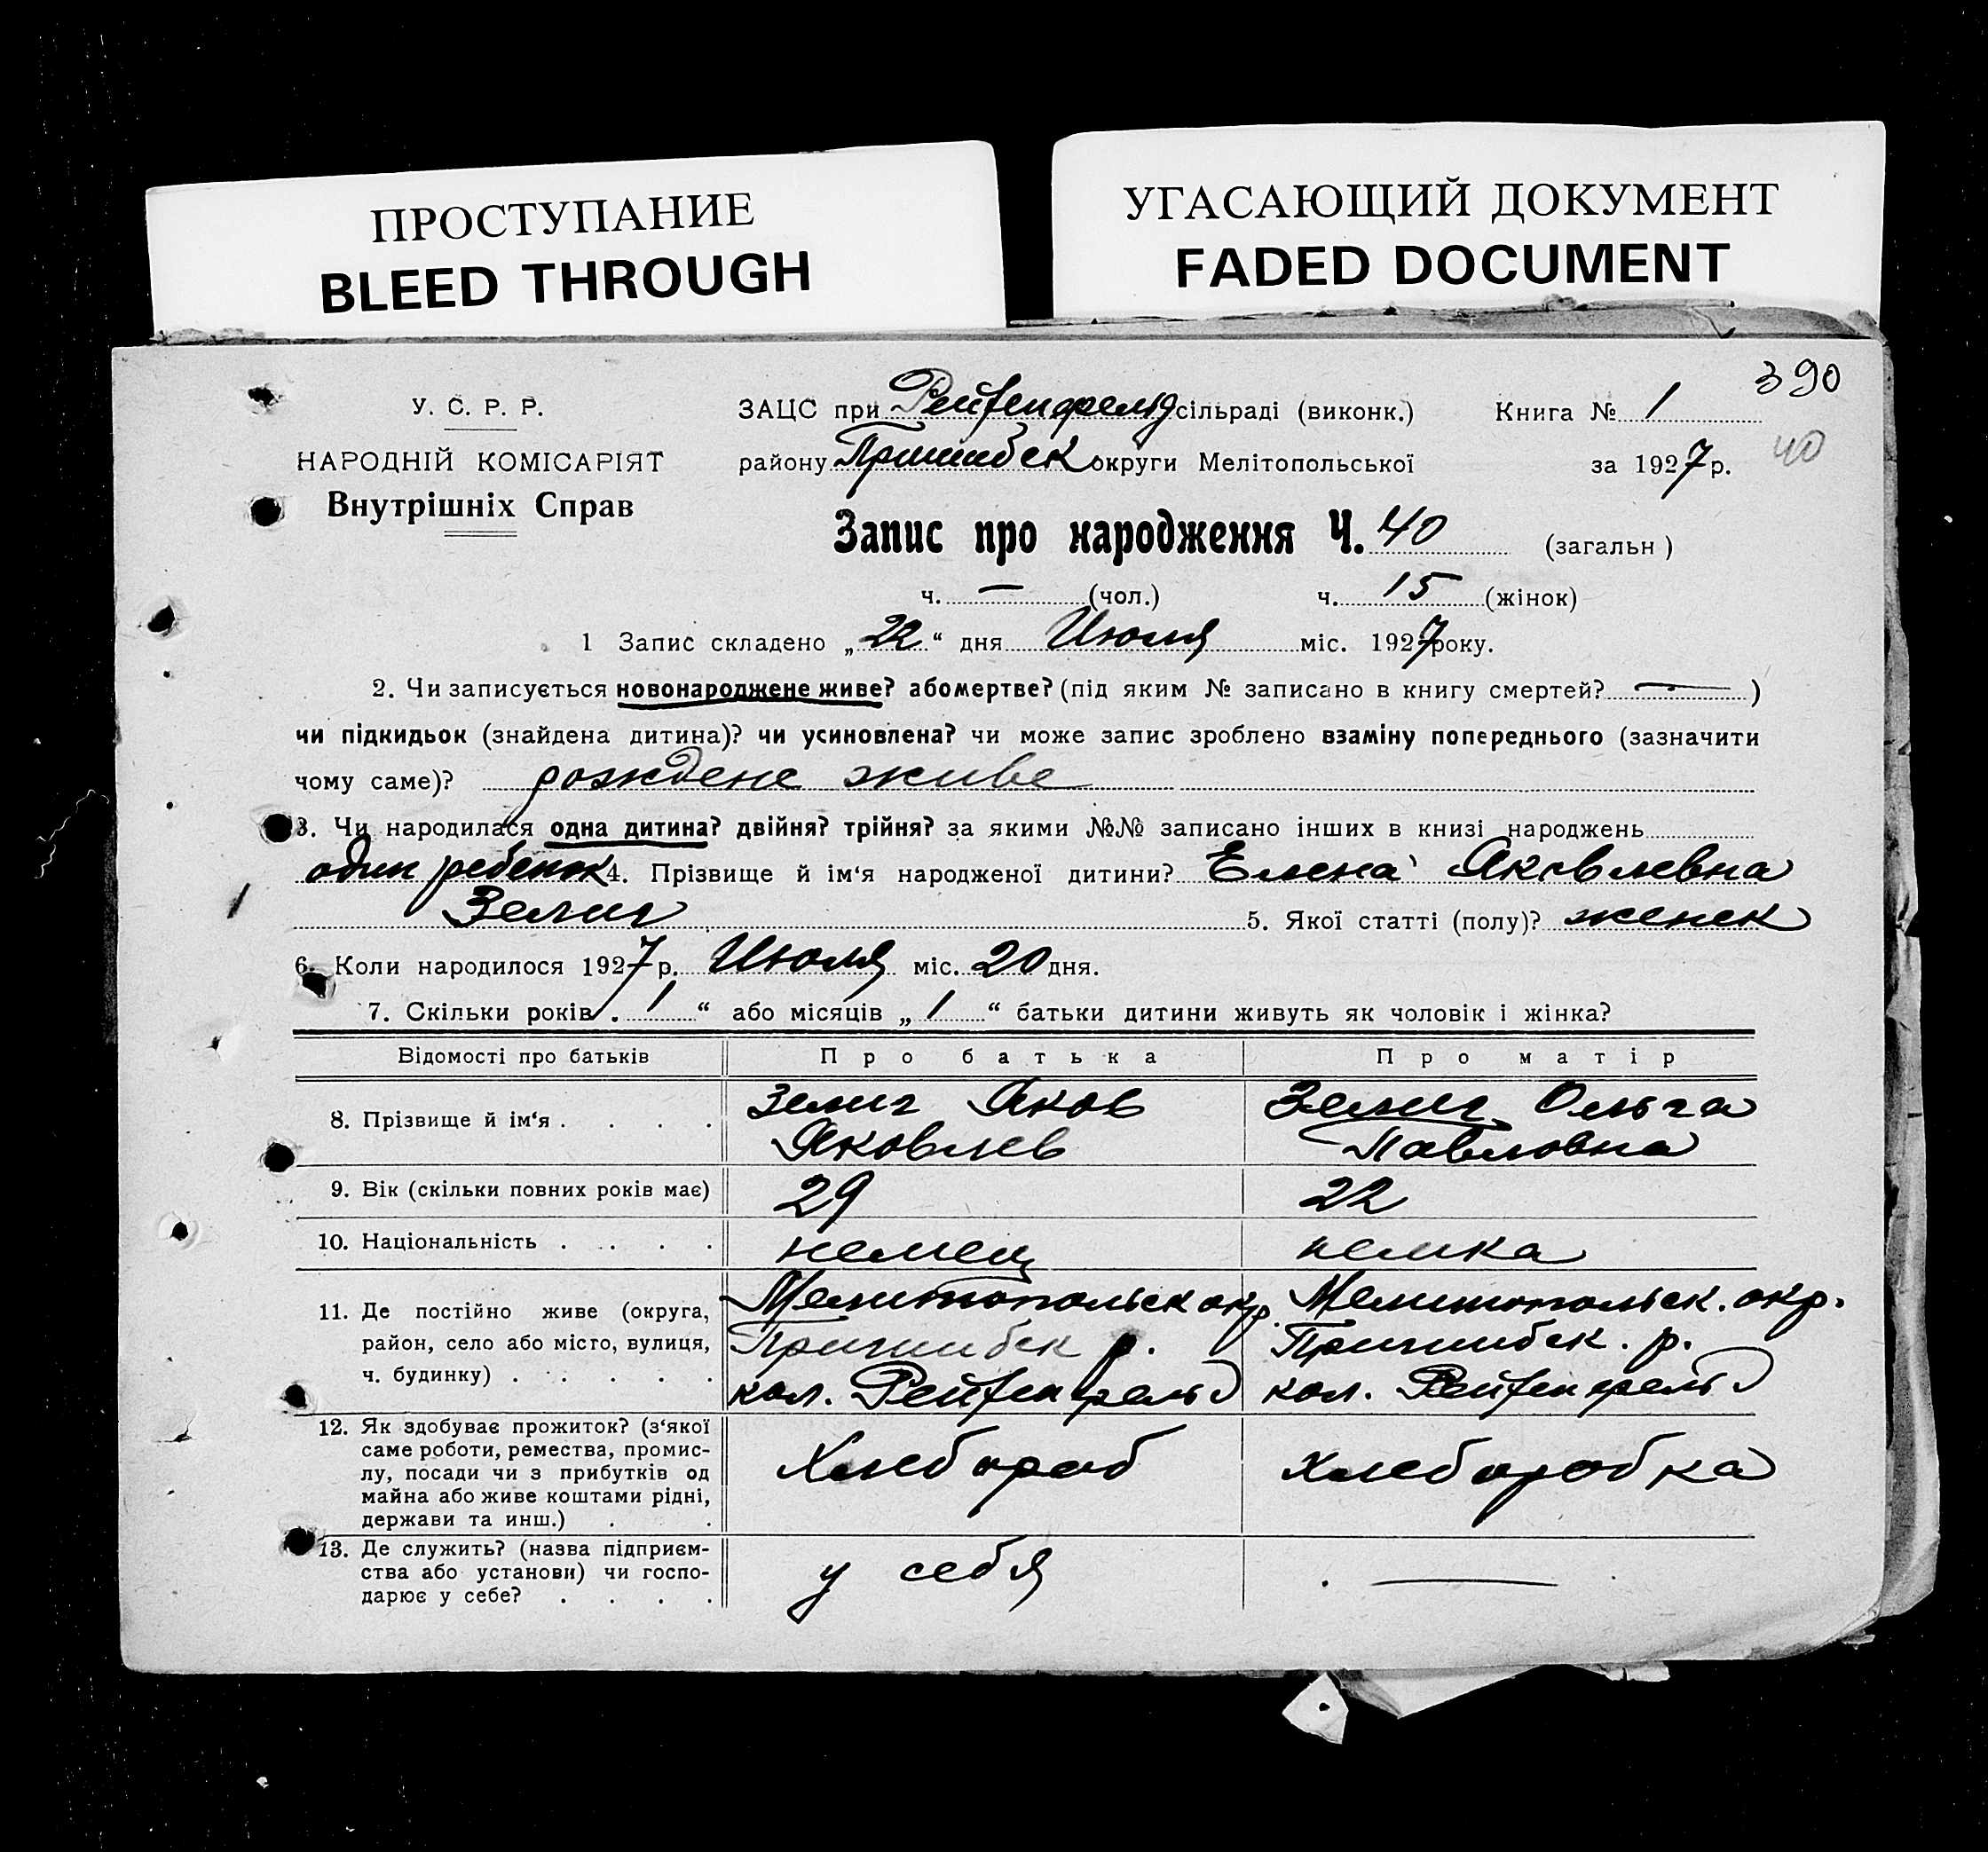 ПРОСТУПАНИЕ
BLEED THROUGH
УГАСАЮЩИЙ ДОКУМЕНТ
FADED DOCUMENT
390
У. С. Р. Р.
ЗАЦС при Рейхенфельд сільраді (виконк.) Книга № 1
НАРОДНІЙ КОМІСАРІЯТ
району Пришибек округи Мелітопольської за 1927 р. 40
Внутрішніх Справ
Запис про народження Ч. 40 (загальн)
ч. — (чол.) ч. 15 (жінок)
1 Запис складено „22“ дня Июля міс. 1927 року.
2. Чи записується новонароджене живе? або мертве? (під яким № записано в книгу смертей? —)
чи підкидьок (знайдена дитина)? чи усиновлена? чи може запис зроблено взаміну попереднього (зазначити
чому саме)? рождене живе
3. Чи народилася одна дитина? двійня? трійня? за якими №№ записано інших в книзі народжень
один ребенок 4. Прізвище й ім‘я народженої дитини? Елена Яковлевна
Зелиг 5. Якої статті (полу)? женск
6. Коли народилося 1927 р. Июля міс. 20 дня.
7. Скільки років „ 1 “ або місяців „ 1 “ батьки дитини живуть як чоловік і жінка?
Відомості про батьків Про батька Про матір
8. Прізвище й ім‘я . . . . Зелиг Яков Зелиг Ольга
Яковлев Павловна
9. Вік (скільки повних років має) 29 22
10. Національність . . . . немец немка
11. Де постійно живе (округа, Мелитопольск окр. Мелитопольск. окр.
район, село або місто, вулиця, Пришибек р. Пришибск. р.
ч. будинку) . . . . . кол. Рейхенфельд кол. Рейхенфельд
12. Як здобуває прожиток? (з‘якої
саме роботи, ремества, промис-
лу, посади чи з прибутків од Хлебороб хлеборобка
майна або живе коштами рідні,
держави та инш.) . .
13. Де служить? (назва підприєм-
ства або установи) чи госпо- у себя —
дарює у себе? . . . .